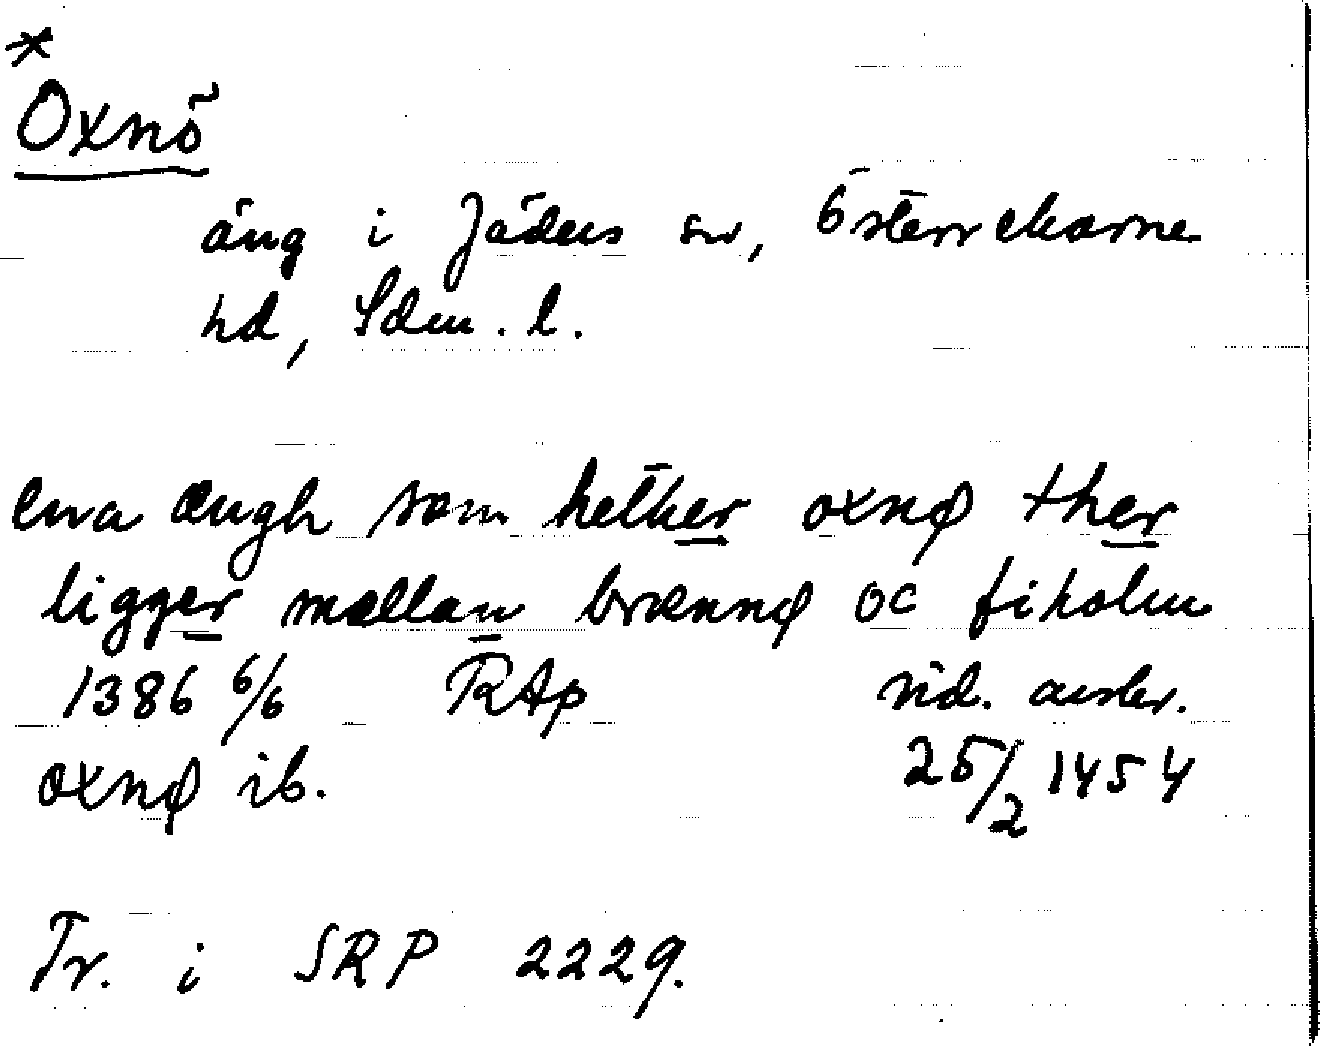 *
Oxnö
äng i Jäders sn, Österrekarne
hd, Sdm. l.
ena ængh som hether oxnø ther
ligger mællan brænnø oc fiholm
1386 6/6 RAp vid. avskr.
oxnø ib. 25/2 1454
Tr. i SRP 2229.